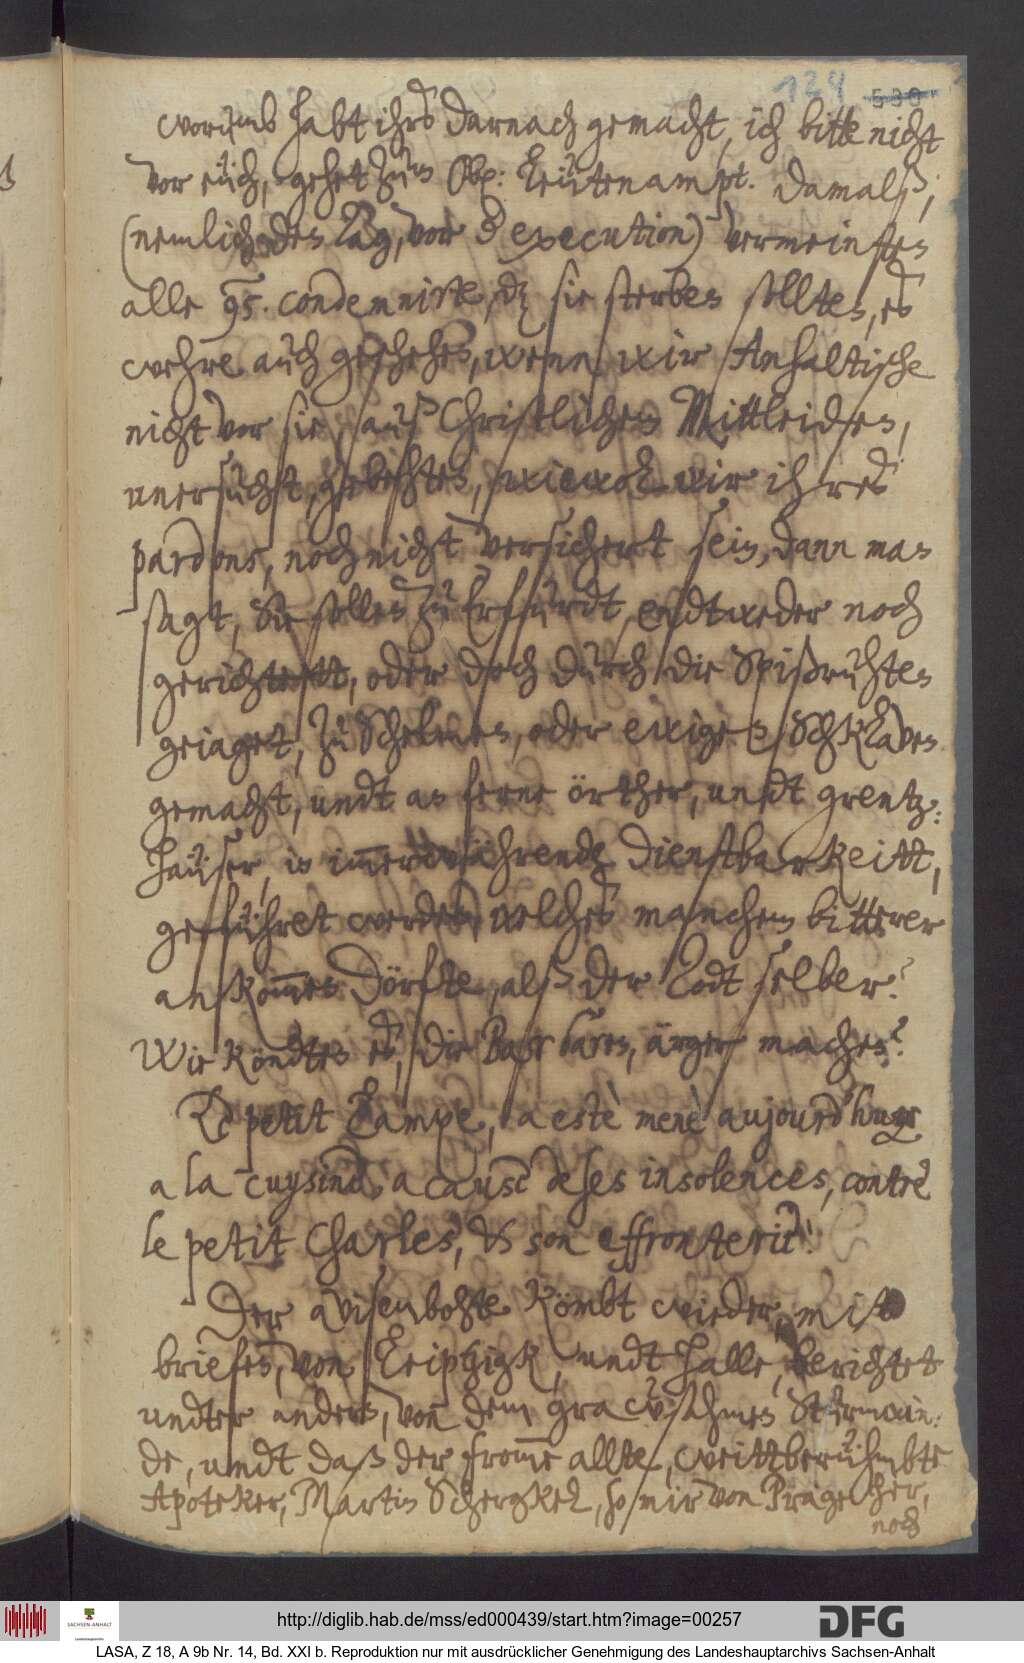 124 530
worumb habt ihrs darnach gemacht, ich bitte nicht
vor euch, gehet zum Ob. Leutenampt. Damalß,
(nemlich des Tag, vor d execution) vermeinten
alle 95. condemnirte, dz sie sterben sollten, es
wehre auch geschehen, wenn wir Anhaltische
nicht vor sie, auß Christlichen Mittleiden,
unersucht, gebehten, wiewol wir ihres
pardons, noch nicht versichert sein, dann man
sagt, Sie sollen zu Erffurdt, endtweder noch
gerichtett, oder doch durch die Spißruhten
geiaget, zu Schelmen, oder ewigen Schklaven
gemacht, undt an ferne örther, undt grentz-
häuser, in im̅erwehrende dienstbarkeitt,
geführet werden, welches manchem bitterer
ankom̅en dörfte, alß der Todt selber.
Wie köndten es, die Barbaren, ärger machen?
Le petit Rampe, a estè menè aujourd'huy
a la cuysine, a cause de ses insolences, contre
le petit Charles, & son effronterie!
Der avisenbohte kömbt wieder, mit
briefen, von Leiptzigk, undt Halle, berichtet
undter andern, von dem grawsahmen Sturmwin-
de, undt daß der from̅e allte, weittberühmbte
Apoteker, Martin Schergkel, so mir von Prage her,
noch
http://diglib.hab.de/mss/ed000439/start.htm?image=00257
SACHSEN-ANHALT
DFG
LASA, Z 18, A 9b Nr. 14, Bd. XXI b. Reproduktion nur mit ausdrücklicher Genehmigung des Landeshauptarchivs Sachsen-Anhalt